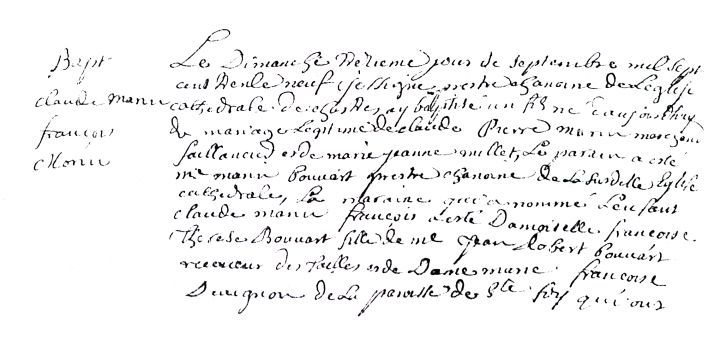 Bapt
claude marin
françois
Morin
Le Dimanche treieme jour de septembre mil sept
cent trente neuf je soussigné prestre chanoine de Leglise
cathedrale de chartres ay baptisé un fils né d'aujourdhuy
du mariage Legitime de claude Pierre morin marchand
faillancier et de marie jeanne millet, Le parain a esté
mre marin bouvart prestre chanoine de La susditte Eglise
cathedrale, La maraine qui a nommé L'enfant
claude marin françois a esté Damoiselle françoise
Therese Bouvart fille de me Jean Robert bouvart
receveur des tailles et de Dame marie françoise
Duvignon de La paroisse de Ste foy qui ont